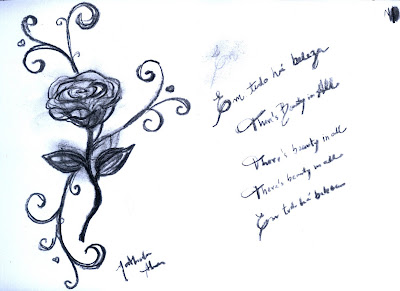 Em tudo há beleza
There's Beauty in All
There's beauty in all
There's beauty in all
Em tudo há beleza